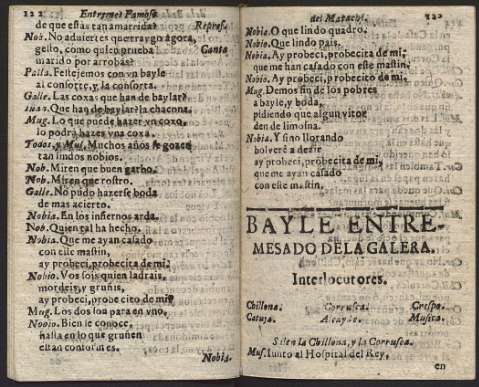 122 Entremes Famoso
de que estàs tan amarrida? Repres.
Nob. No aduiertes que traygo agora,
gesto, como quien prueba Canta
marido por arrobas?
Palla. Festejemos con vn bayle
al consorte, y la consorta.
Galle. Las coxas que han de baylar?
Que han de baylar? la chacona.
Mug. Lo que puede hazer vn coxo,
lo podrà hazer vna coxa.
Todos, y Mus. Muchos años se gozen
tan lindos nobios.
Nob. Miren que buen garbo.
Nob. Miren que rostro.
Galle. No pudo hazerse boda
de mas acierto.
Nobia. En los infiernos arda.
Nob. Quien tal ha hecho.
Nobia. Que me ayan casado
con este mastin,
ay probeci, probecita de mi.
Nobio. Vos sois quien ladrais,
mordeis, y gruñis,
ay probeci, probecito de mi?
Mug. Los dos son para en vno.
Nobio. Bien se conoce,
hasta en lo que gruñen
estan conformes.
Nobia.
del Matachin. 123
Nobia. O que lindo quadro.
Nobio. Que lindo pais.
Nobia. Ay probeci, probecita de mi,
que me han casado con este mastin.
Nobio. Ay probeci, probecito de mi.
Mug. Demos fin de los pobres
a bayle, y boda,
pidiendo que algun vitor
den de limosna.
Nobia. Y sino llorando
bolverè a dezir
ay probeci, probecita de mi,
que me ayan casado
con este mastin.
BAYLE ENTRE-
MESADO DE LA GALERA.
Interlocutores.
Chillona. Corrusca. Crespa.
Catuja. Alcayde. Musica.
Salen la Chillona, y la Corrusca.
Mus. Iunto al Hospital del Rey,
en